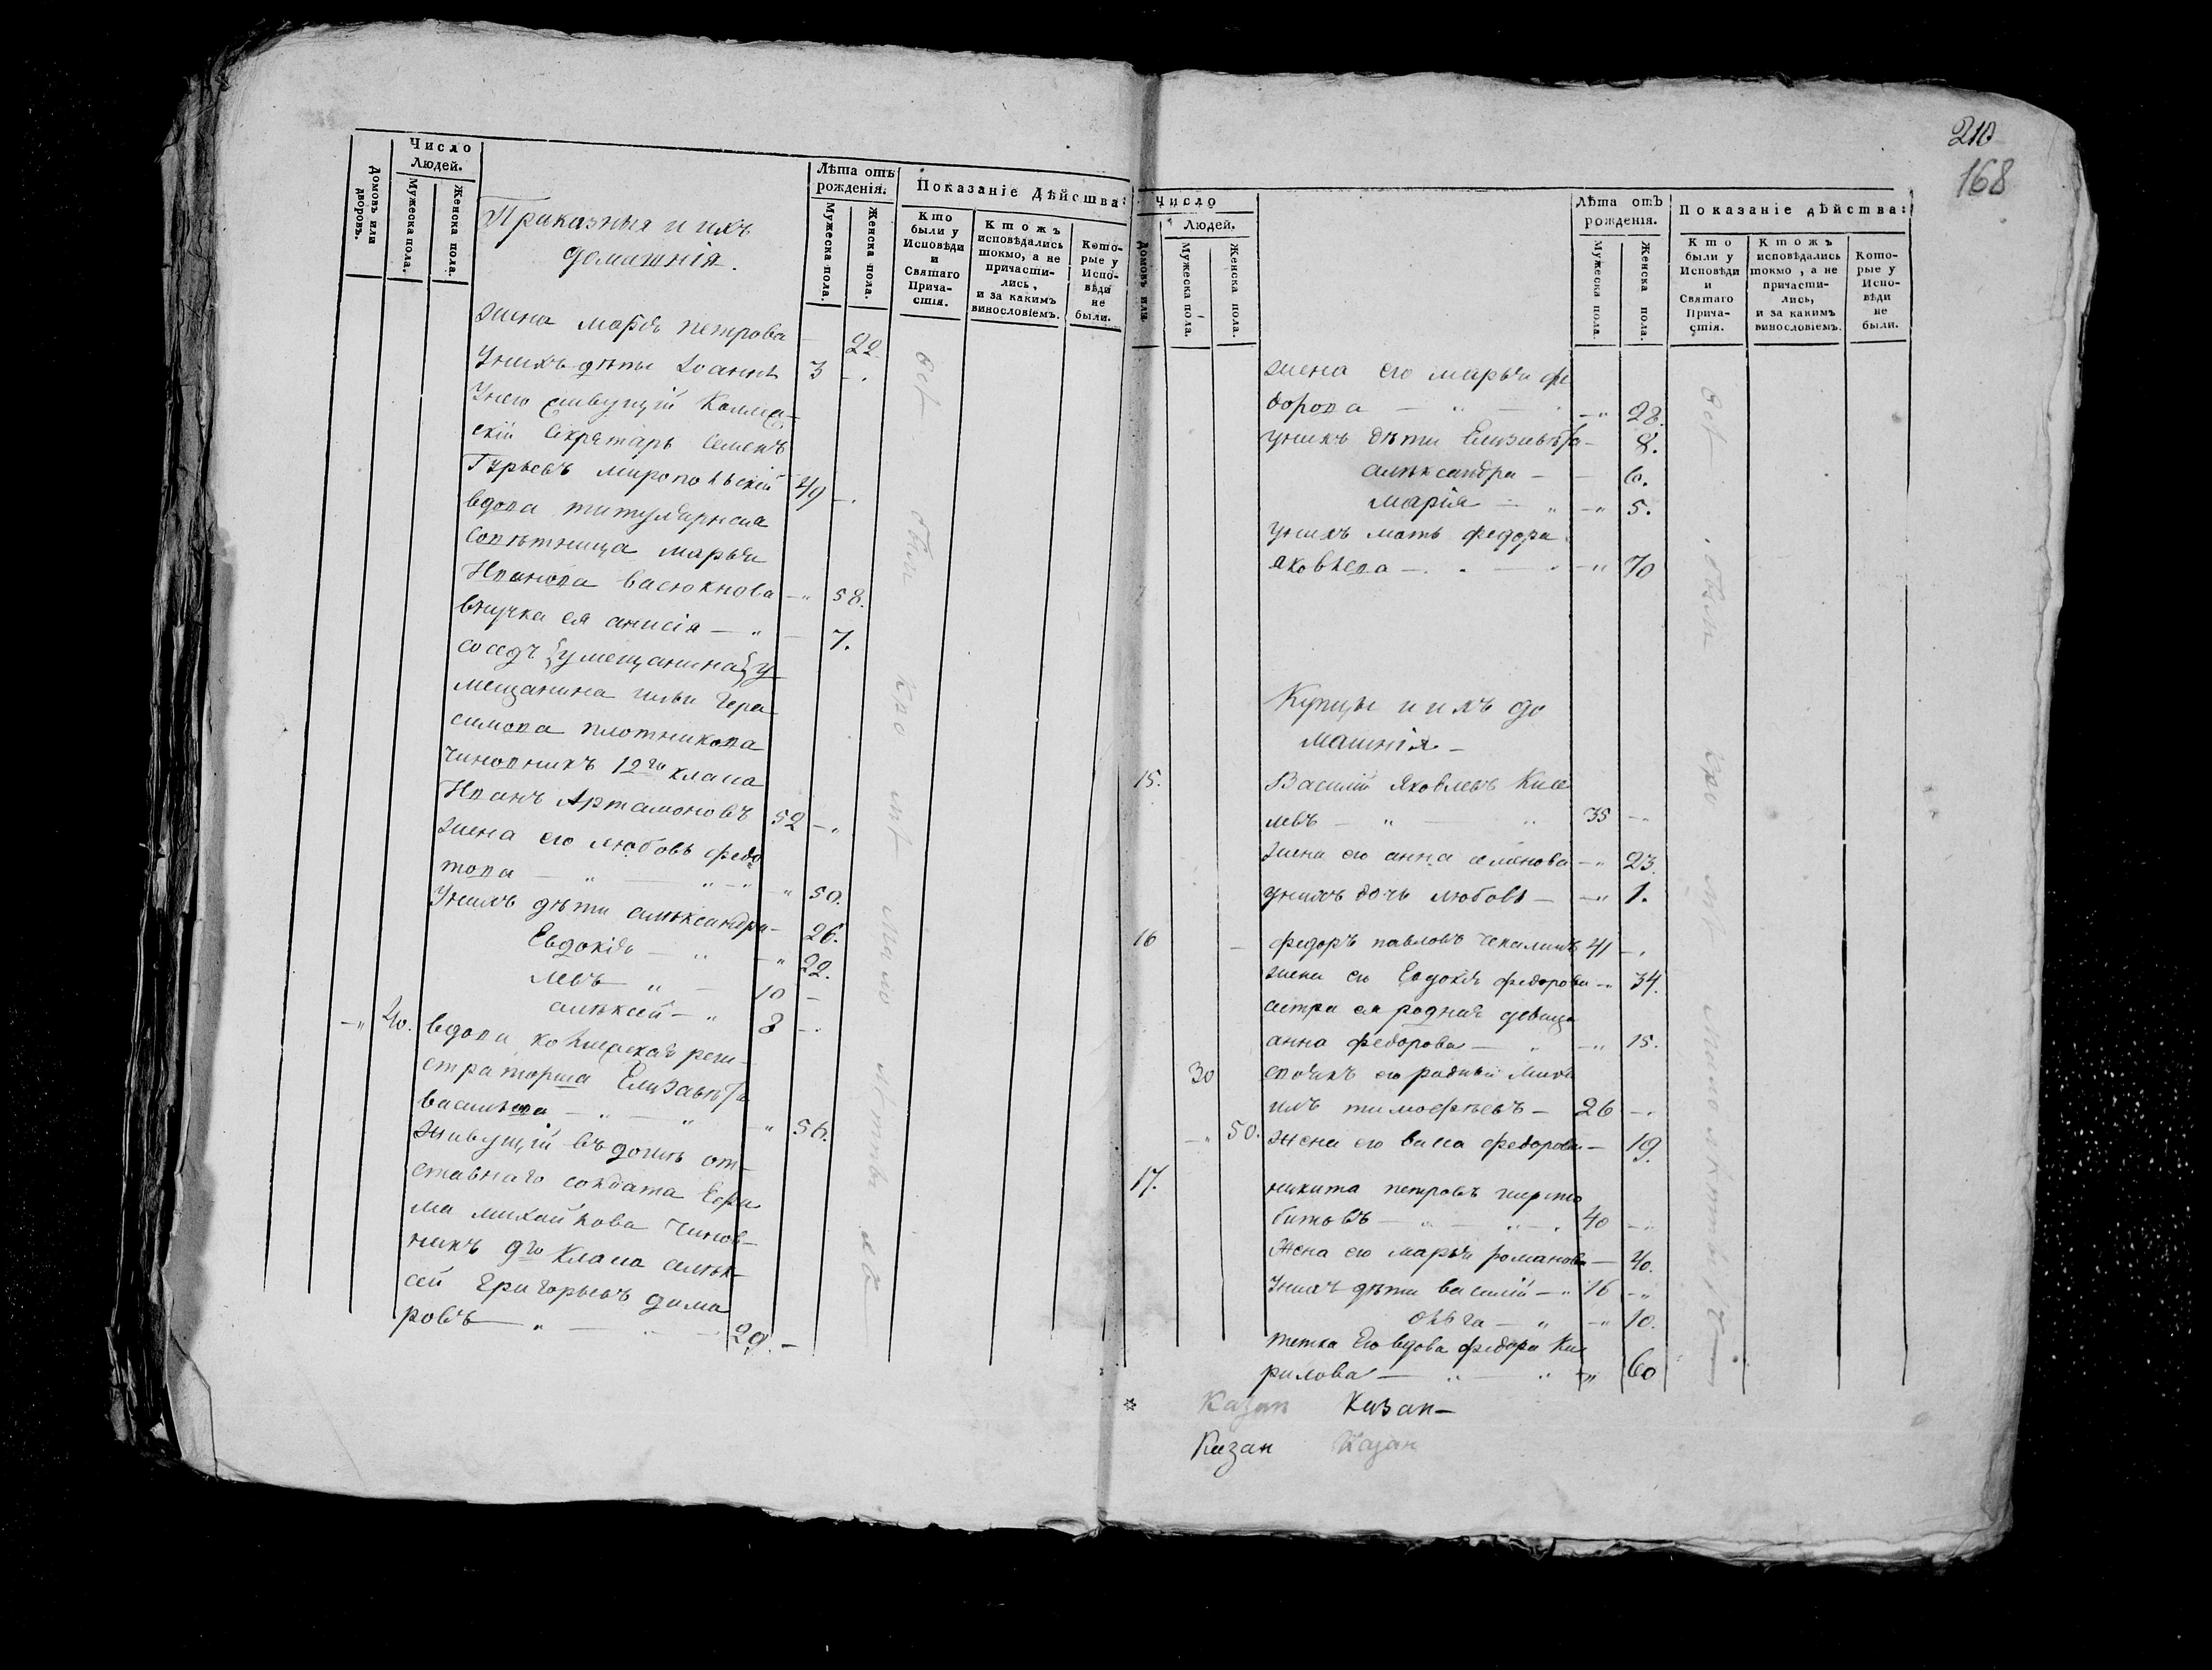 Число
Людей.
Домовъ или дворовъ.
Мужеска пола.
Женска пола.
Приказныя и ихъ
домашнія.
Лѣта отъ
рожденія.
Мужеска пола.
Женска пола.
Показаніе дѣйства:
Кто
были у
Исповѣди
и
Святаго
Прича-
стія.
Ктожъ
исповѣдались
токмо, а не
причасти-
лись,
и за какимъ
винословіемъ.
Кото-
рые у
Испо-
вѣди
не
были.
жена марѳа петрова 22.
Унихъ дѣти Іоаннъ 3
Унего живущій Коллеж-
скій Секретарь Семенъ
Гурьевъ миропольскій 49
вдова титулярная
Совѣтница марья
Иванова васюкнова 58.
внучка ея анисія 7.
соседъ {у мещанина} у
мещанина ильи Гера
симова плотникова
чиновникъ 12го класа
Иванъ Артамоновъ 52
жена его любовь федо
това 50.
Унихъ дѣти александра 26.
Евдокія 22.
левъ 10
алексей 8
40. вдова коллежская реги-
страторша Елизавѣта
васильева 56.
живущій въ домѣ от-
ставнаго солдата Ефи
ма михайлова чинов-
никъ 9го класа алек-
сей Григорьевъ дама
ровъ 29.
210
168
Число
Людей.
Домовъ или
Мужеска пола.
Женска пола.
Лѣта отъ
рожденія.
Мужеска пола.
Женска пола.
Показаніе дѣйства:
Кто
были у
Исповѣди
и
Святаго
Прича-
стія.
Ктожъ
исповѣдались
токмо, а не
причасти-
лись,
и за какимъ
винословіемъ.
Кото-
рые у
Испо-
вѣди
не
были.
жена его марья фе
дорова 28.
унихъ дѣти Елизавѣта 8.
александра 6.
марія 5.
унихъ мать федора
яковлева 70
Купцы и ихъ до
машнія
15. Василій Яковлевъ Кисе
левъ 35
жена его анна семенова 23.
унихъ дочь любовь 1.
16 федоръ павловъ чекалинъ 41
жена его Евдокія федорова 34.
сестра ея родная девица
анна федорова 15.
30 своякъ его родный миха
илъ тимофѣевъ 26
50. жена его васса федорова 19.
17. никита петровъ
битовъ 40
Жена его марья романова 40.
Унихъ дѣти василій 16
ольга 10.
тетка Его вдова федора Ки
рилова 60
Казан Казан
Казан Казан